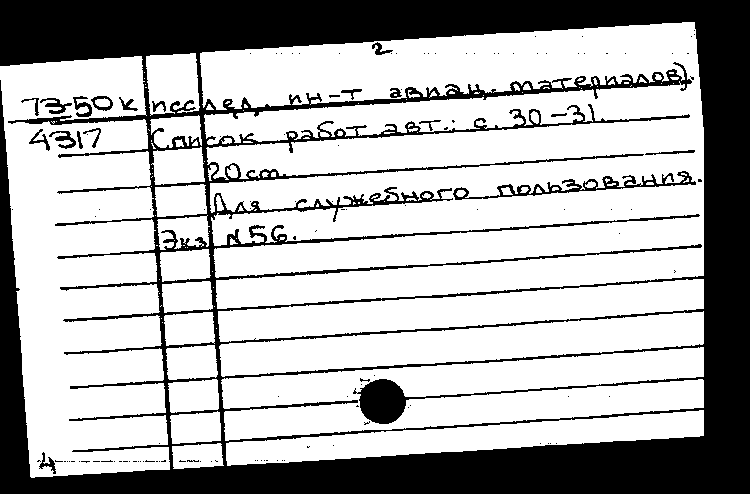 2
73-50к исслед. ин-т авиац. материалов).
4317 Список работ авт.: с. 30-31.
20 см.
Для служебного пользования.
Экз. N 56.
4